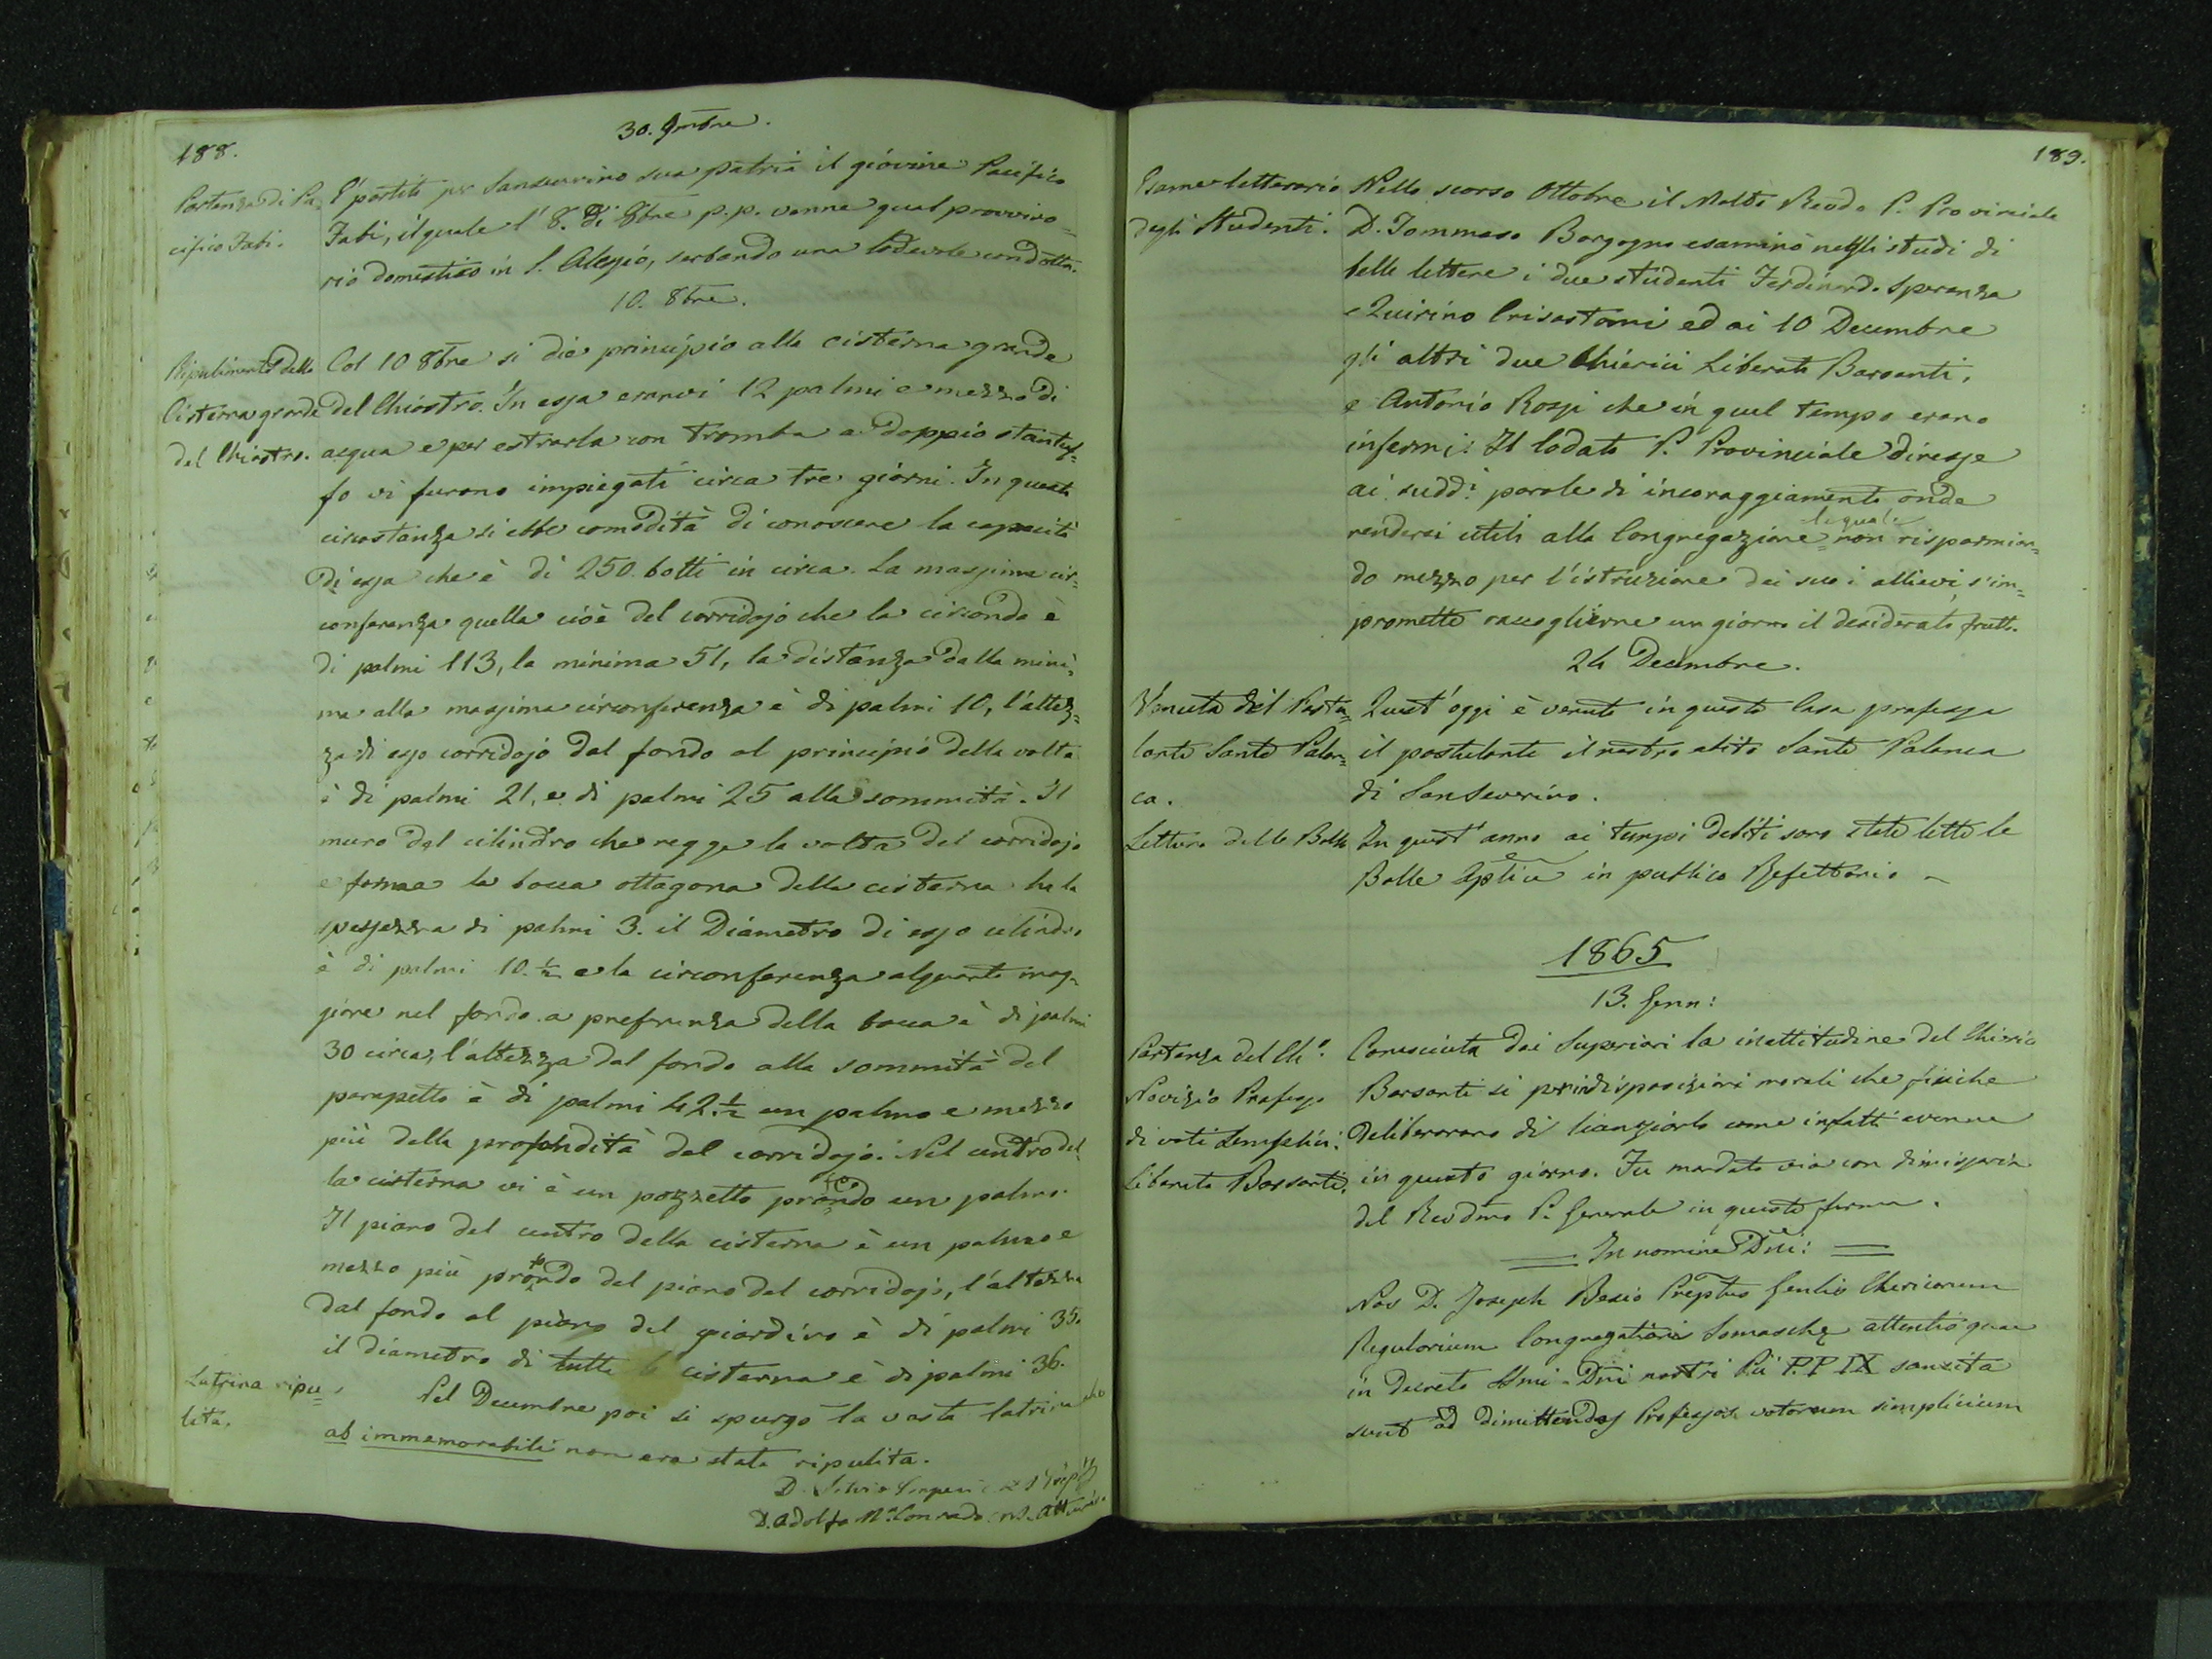 188.
30. 9mbre.
Partenza di Pa=
cifico Fabi.
E' partito per Sanseverino sua patria il giovine Pacifico
Fabi, il quale l' 8. di 8bre p.p. venne qual provviso=
rio domestico in S. Alessio, serbando una lodevole condotta.
10. 8bre.
Ripulimento della
Cisterna grande
del Chiostro.
Col 10 8bre si diè principio alla cisterna grande
del Chiostro. In essa eranvi 12 palmi e mezzo di
acqua e per estrarla con tromba a doppio stantuf=
fo vi furono impiegati circa tre giorni. In questa
circostanza si ebbe comodità di conoscere la capacità
di essa che è di 250. botti in circa. La massima cir=
conferenza quella cioè del corridojo che la circonda è
di palmi 113, la minima 51, la distanza dalla mini=
ma alla massima circonferenza è di palmi 10, l'altez=
za di esso corridojo dal fondo al principio della volta
è di palmi 21, e di palmi 25 alla sommità. Il
muro del cilindro che regge la volta del corridojo
e forma la bocca ottagona della cisterna ha la
spessezza di palmi 3. il Diametro di esso cilindro
è di palmi 10. ½ e la circonferenza alquanto mag=
giore nel fondo a preferenza della bocca è di palmi
30 circa, l'altezza dal fondo alla sommità del
parapetto è di palmi 42. ½ un palmo e mezzo
più della profondità del corridojo. Nel centro del=
la cisterna vi è un pozzetto profondo un palmo.
Il piano del centro della cisterna è un palmo e
mezzo più profondo del piano del corridojo, l'altezza
dal fondo al piano del giardino è di palmi 35.
il diametro di tutta la cisterna è di palmi 36.
Latrina ripu=
lita.
Nel Decembre poi si spurgò la vasta latrina che
ab immemorabili non era stata ripulita.
D. Silvio
D. Adolfo Mª Conrado
189.
Esame letterario
degli Studenti.
Nello scorso Ottobre il Molto Revdo P. Provinciale
D. Tommaso Borgogno esaminò negli studi di
belle lettere i due studenti Ferdinando Speranza
e Quirino Crisostomi ed ai 10 Decembre
gli altri due Chierici Liberato Barsanti,
e Antonio Rossi che in quel tempo erano
infermi. Il lodato P. Provinciale diresse
ai sudd.i parole di incoraggiamento onde
rendersi utili alla Congregazione = la quale non risparmian=
do mezzo per l'istruzione dei suoi allievi, s'im=
promette raccoglierne un giorno il desiderato frutto.
24 Decembre.
Venuta del Postu=
lante Sante Palan=
ca.
Quest'oggi è venuto in questa Casa professa
il postulante il nostro abito Sante Palanca
di Sanseverino.
Lettura delle Bolle
In quest'anno ai tempi debiti sono state lette le
Bolle Aplice in publico Refettorio
1865
13. Genn:
Partenza del Ch.º
Novizio Professo
di voti semplici
Liberato Barsanti.
Conosciuta dai Superiori la inattitudine del Chierico
Barsanti si per indisposizioni morali che fisiche
deliberarono di licenziarlo come infatti avenne
in questo giorno. Fu mandato via con dimissoria
del Revdmo P. Generale in questa forma.
= In nomine Dni: =
Nos D. Joseph Besio Prepstus Genlis Clericorum
Regularium Congregationis Somaschę attentis quae
in decreto SSmi Dni nostri Pii P.P IX sancita
sunt ad dimittendos Professos votorum simplicium